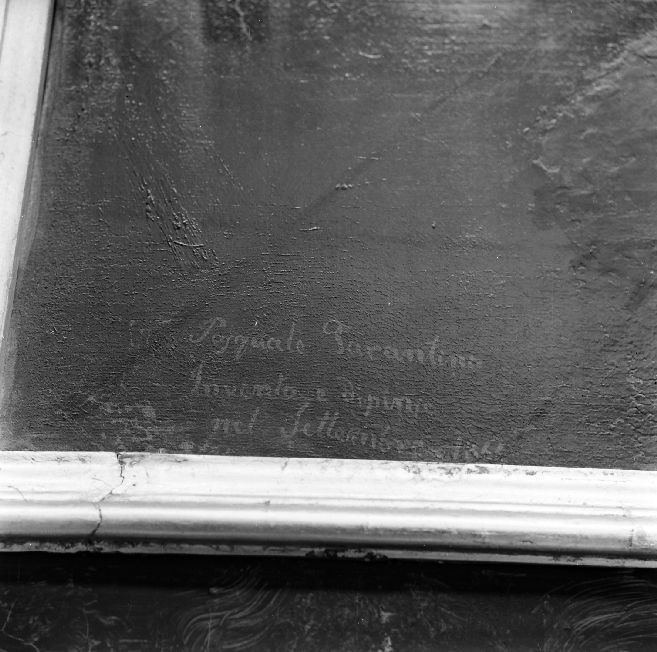 Pasquale Tarantino
Inventò e dipinse
nel Settembre